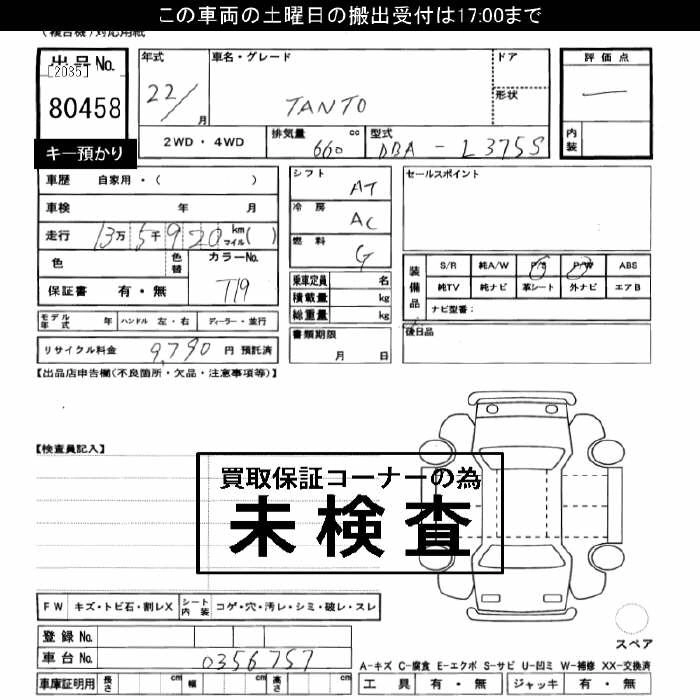 この車両の土曜日の搬出受付は17:00まで
(複合機)対応用紙
出品No.
[2035]
80458
キー預かり
年式 車名・グレード ドア
22/月 TANTO 形状
評価点
—
内装
2WD・4WD 排気量 660 cc 型式 DBA - L375S
車歴 自家用・( )
車検 年 月
走行 13万5千920 km マイル( )
色 色替 カラーNo.
T19
保証書 有・無
シフト AT
冷房 AC
燃料 G
乗車定員 名
積載量 kg
総重量 kg
書類期限
月 日
セールスポイント
装備品
S/R 純A/W P/S P/W ABS
純TV 純ナビ 革シート 外ナビ エアB
ナビ型番:
後日品
モデル年式 年 ハンドル 左・右 ディーラー・並行
リサイクル料金 9,790 円 預託済
【出品店申告欄(不良箇所・欠品・注意事項等)】
【検査員記入】
買取保証コーナーの為
未検査
FW キズ・トビ石・割レX シート内装 コゲ・穴・汚レ・シミ・破レ・スレ
登録No.
車台No. 0356757
スペア
A-キズ C-腐食 E-エクボ S-サビ U-凹ミ W-補修 XX-交換済
車庫証明用 長さ cm 幅 cm 高さ cm
工具 有・無 ジャッキ 有・無